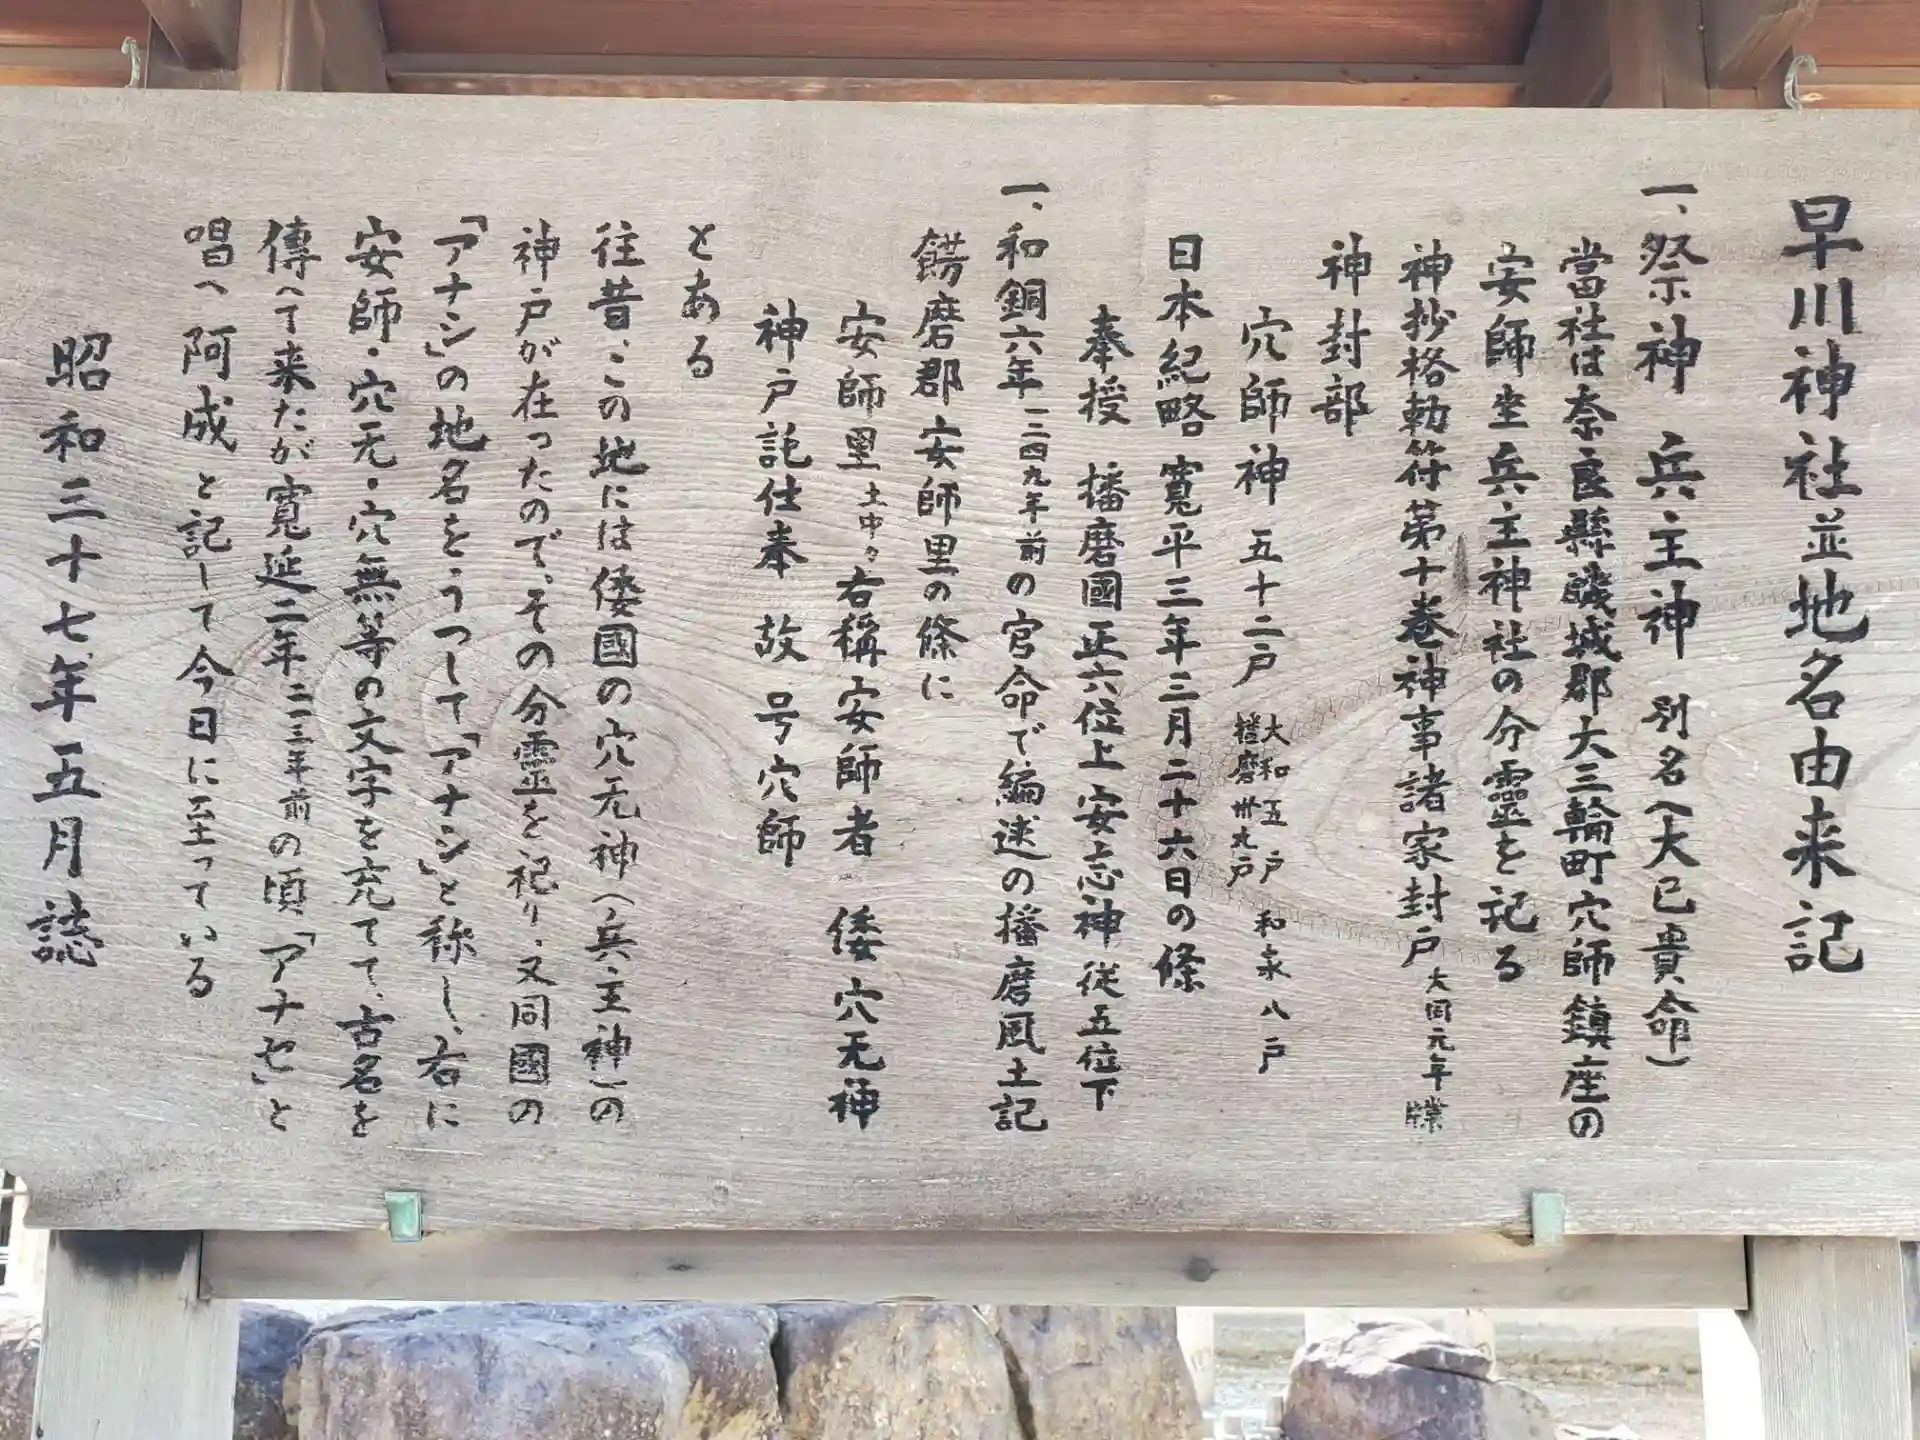 早川神社並地名由来記
一、祭神 兵主神 別名(大已貴命)
當社は奈良縣磯城郡大三輪町穴師鎮座の
安師坐兵主神社の分靈を祀る
神抄格勅符第十巻神事諸家封戸 大同元年牒
神封部
穴師神 五十二戸 大和五戸 和泉八戸
播磨卅九戸
日本紀略 寛平三年三月二十六日の條
奉授 播磨國正六位上安志神從五位下
一、和銅六年一二四九年前の官命で編述の播磨風土記
餝磨郡安師里の條に
安師里 土中々 右稱安師者 倭穴无神
神戸託仕奉 故 号穴師
とある
往昔、この地には倭國の穴无神(兵主神)の
神戸が在ったので、その分靈を祀り、又同國の
「アナシ」の地名をうつして「アナシ」と称し、右に
安師・穴无・穴無等の文字を充てて、古名を
傳へて来たが寛延二年二一三年前の頃「アナセ」と
唱へ阿成と記して今日に至っている
昭和三十七年五月誌